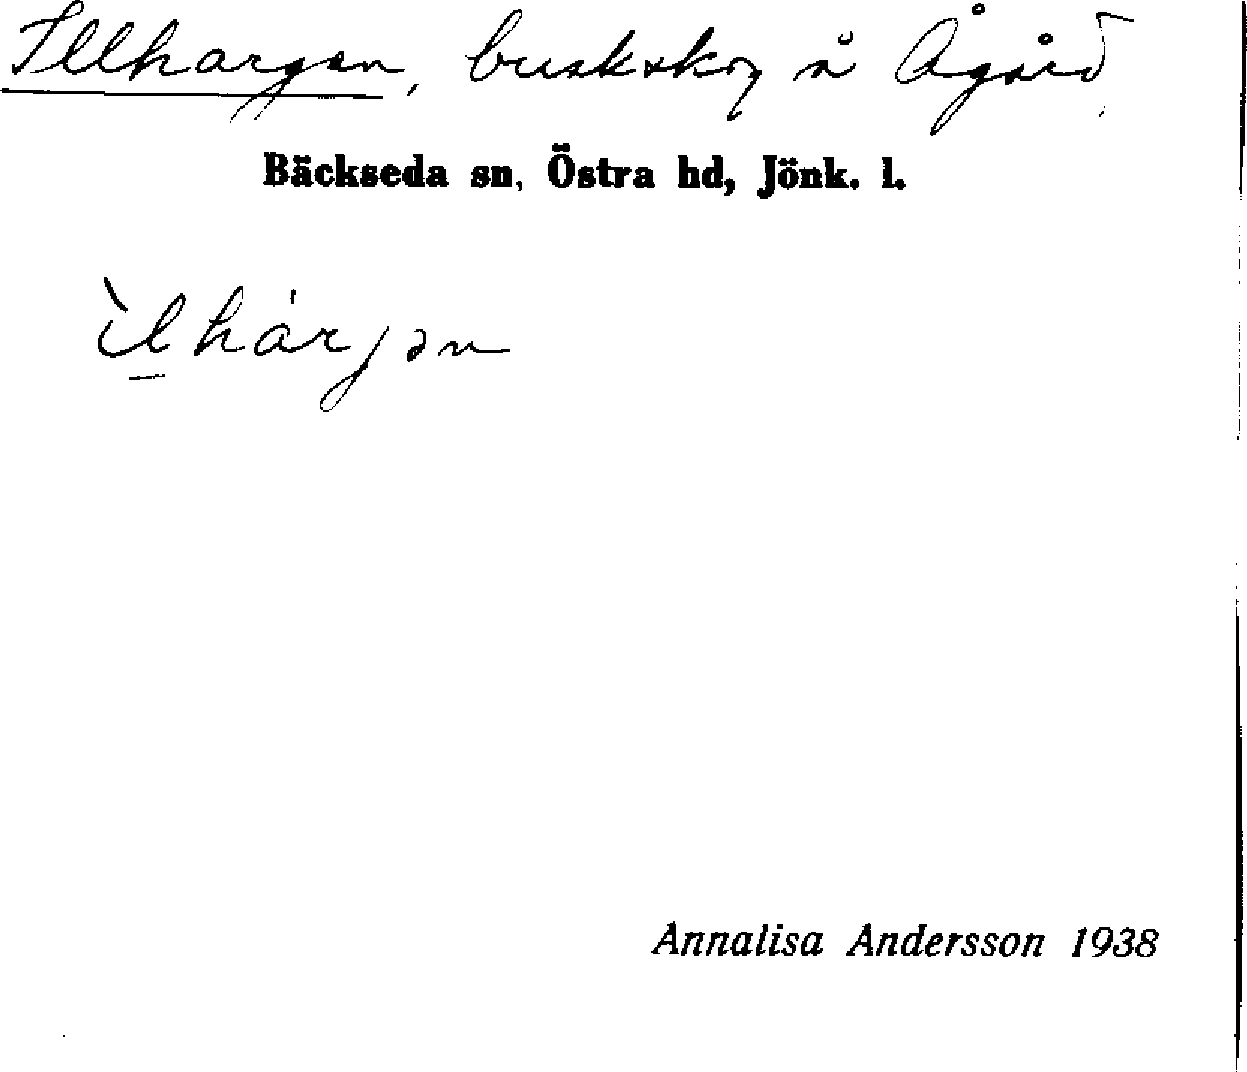 Illhargen, buskskog å Ågård,
Bäckseda sn, Östra hd, Jönk. l.
ìlhárjən
Annalisa Andersson 1938